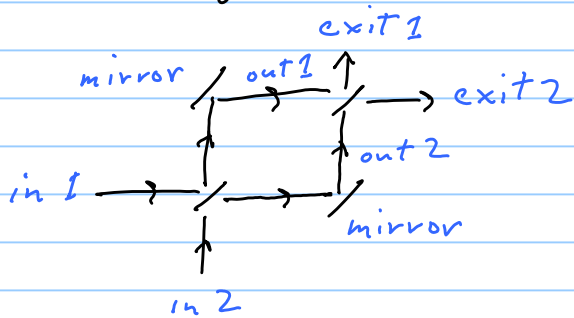 exit 1
mirror
out 1
exit 2
out 2
in 1
mirror
in 2